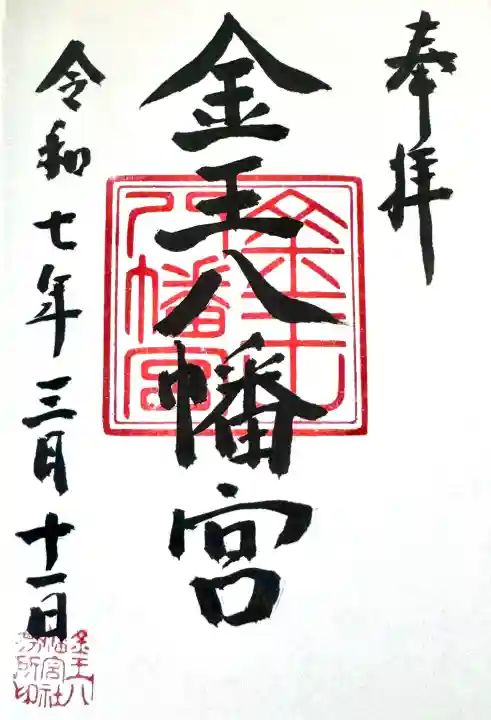 奉拝
金王八幡宮
令和七年三月十一日
金王八幡宮
金王八幡宮社務所印